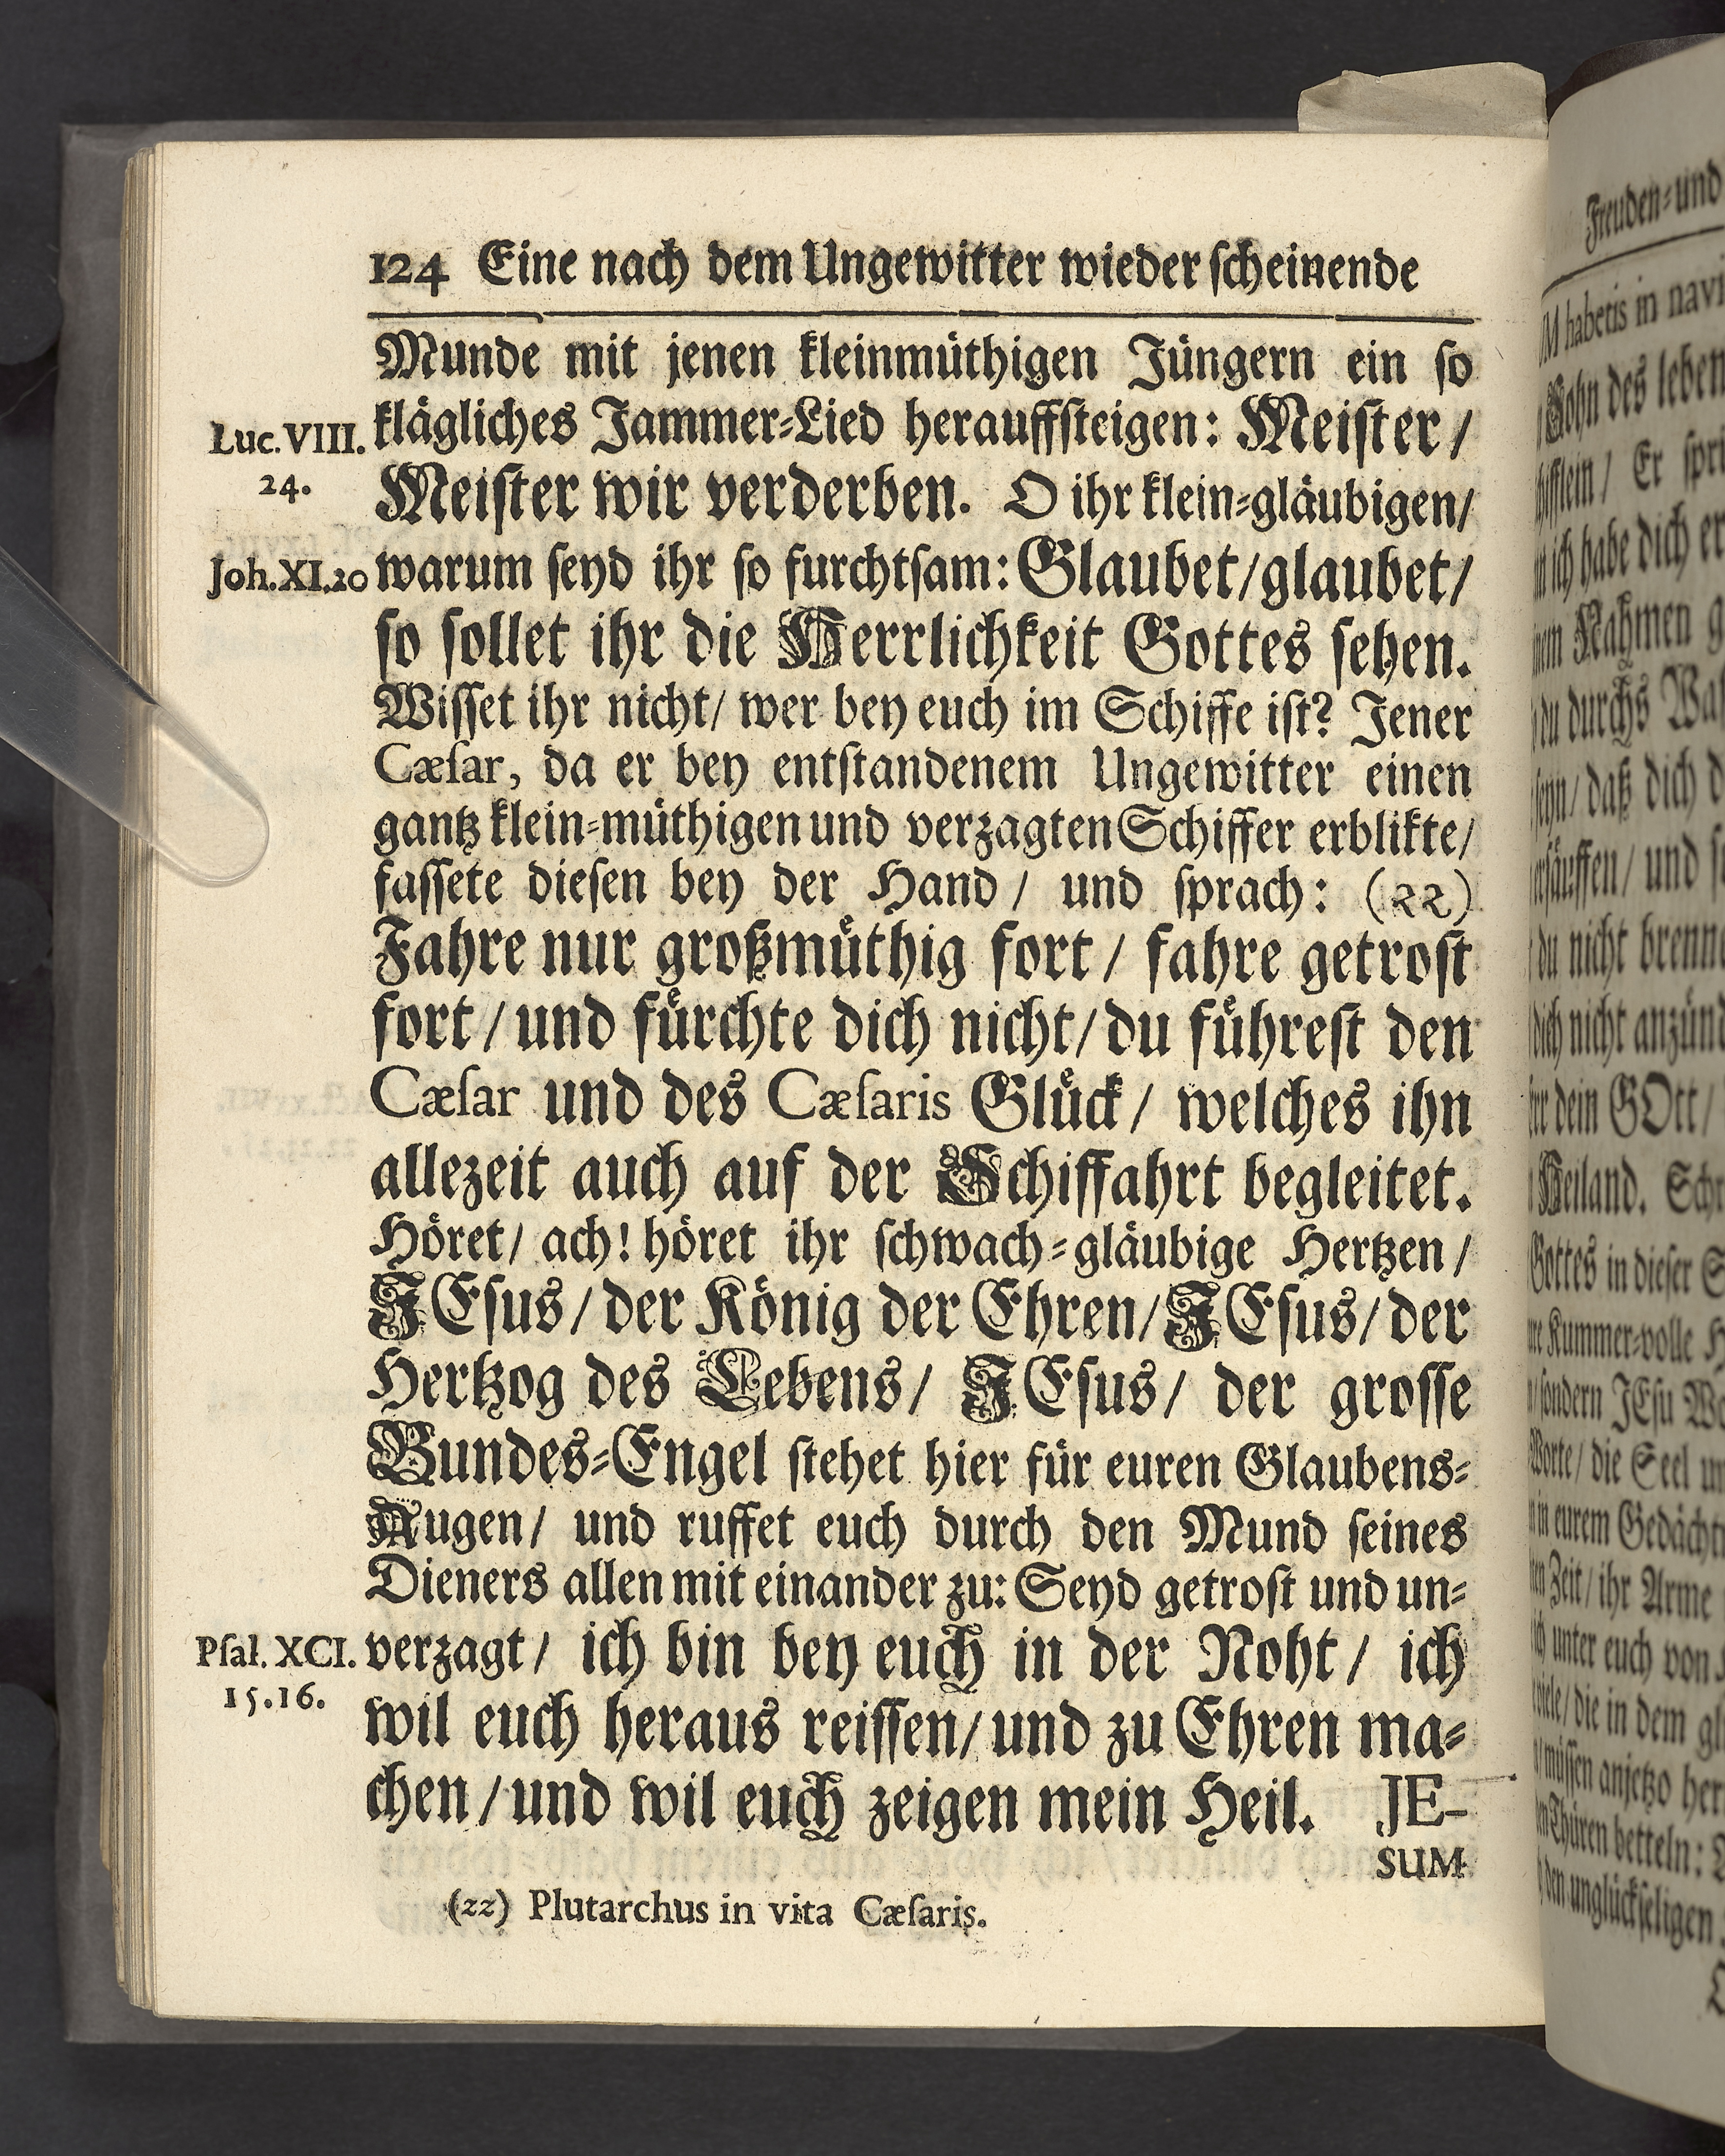 124 Eine nach dem Ungewitter wieder ſcheinende
Munde mit jenen kleinmüthigen Jüngern ein ſo
Luc. VIII. klägliches Jammer-Lied herauffſteigen: Meiſter /
24. Meiſter wir verderben. O ihr klein-gläubigen/
Joh. XI. 20 warum ſeyd ihr ſo furchtſam: Glaubet/glaubet/
ſo ſollet ihr die Herrlichkeit Gottes ſehen.
Wiſſet ihr nicht/ wer bey euch im Schiffe iſt? Jener
Cæſar, da er bey entſtandenem Ungewitter einen
gantz klein-müthigen und verzagten Schiffer erblikte/
faſſete dieſen bey der Hand / und ſprach: (22)
Fahre nur großmüthig fort / fahre getroſt
fort / und fürchte dich nicht/ du führeſt den
Cæſar und des Cæſaris Glück / welches ihn
allezeit auch auf der Schiffahrt begleitet.
Höret/ ach! höret ihr ſchwach-gläubige Hertzen /
JEſus / der König der Ehren/ JEſus / der
Hertzog des Lebens/ JEſus/ der groſſe
Bundes-Engel ſtehet hier für euren Glaubens-
Augen/ und ruffet euch durch den Mund ſeines
Dieners allen mit einander zu: Seyd getroſt und un-
Pſal. XCI. verzagt/ ich bin bey euch in der Noht / ich
15.16. wil euch heraus reiſſen/ und zu Ehren ma-
chen / und wil euch zeigen mein Heil. JE-
SUM
(22) Plutarchus in vita Cæſaris.
Freuden-und
M habetis in navi
Sohn des leben
Er ſpri
ich habe dich er
Nahmen g
du durchs Waſ
daß dich d
und ſ
du nicht brenne
dich nicht anzünd
dein GOtt/
Heiland. Schr
Gottes in dieſer S
Kummer-volle H
ſondern JEſu Wo
Worte / die Seel un
in eurem Gedächt
Zeit/ ihr Arme
unter euch von
die in dem gl
müſſen anjetzo her
Thüren betteln:
den unglückſeligen